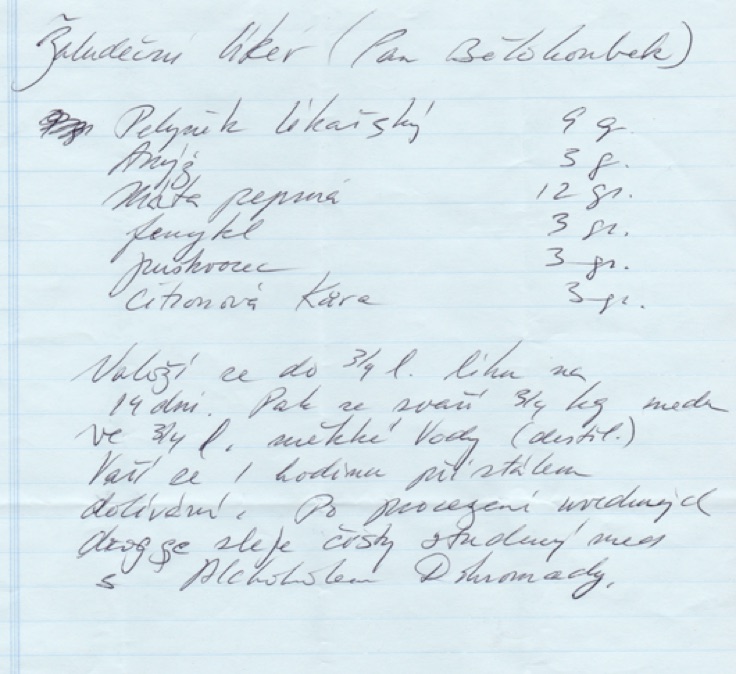 Žaludeční likér (Pan Bělohoubek)
Pelyněk lékařský 9 g.
Anýz 3 g.
Máta peprná 12 gr.
fenykl 3 gr.
puškvorec 3 gr.
Citronová Kůra 3 gr.
Naloží se do 3/4 l. lihu na
14 dni. Pak se svaří 3/4 kg medu
ve 3/4 l. měkké Vody (destil.)
Vaří se 1 hodinu při stálem
dolívání. Po procezení uvedených
drog se sleje čistý studený med
s Alchoholem Dohromady.